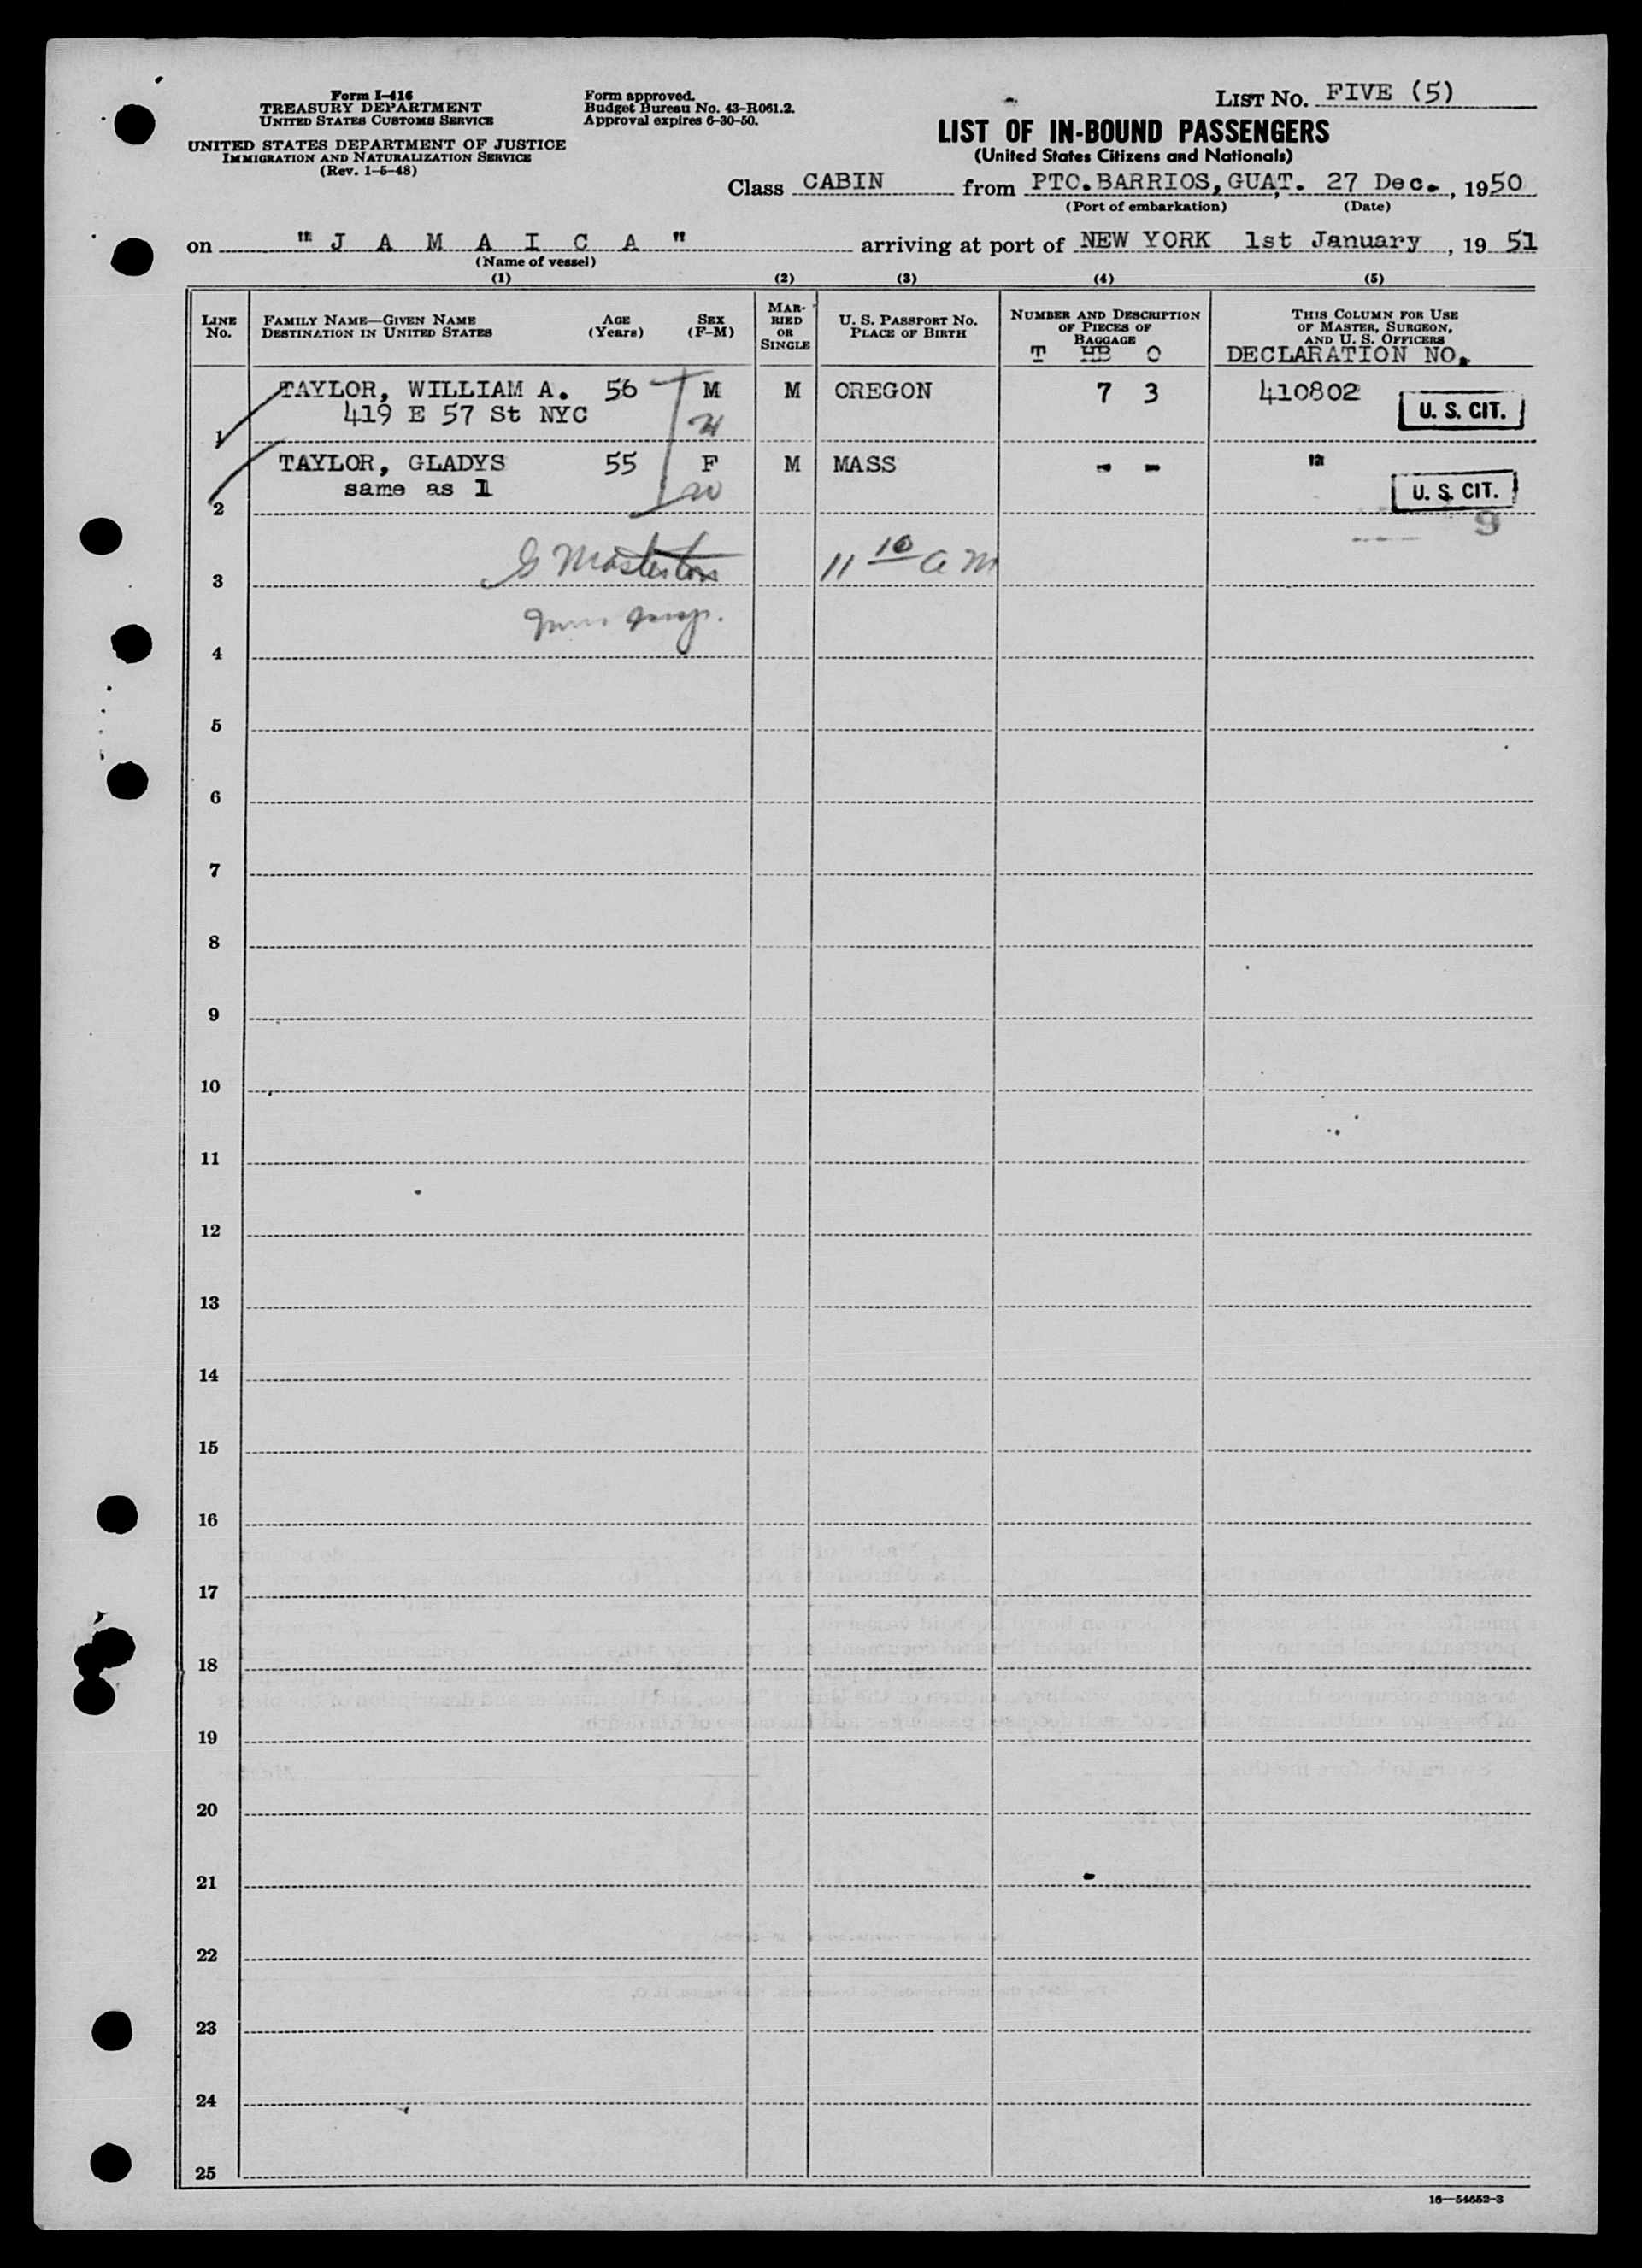 Form I-416
TREASURY DEPARTMENT
UNITED STATES CUSTOMS SERVICE
UNITED STATES DEPARTMENT OF JUSTICE
IMMIGRATION AND NATURALIZATION SERVICE
(Rev. 1-5-48)
Form approved.
Budget Bureau No. 43-R061.2.
Approval expires 6-30-50.
LIST NO. FIVE (5)
LIST OF IN-BOUND PASSENGERS
(United States Citizens and Nationals)
Class CABIN from PTO.BARRIOS,GUAT. 27 Dec., 1950
(Port of embarkation) (Date)
on "J A M A I C A" arriving at port of NEW YORK 1st January, 19 51
(Name of vessel)
(1) (2) (3) (4) (5)
LINE NO.
FAMILY NAME—GIVEN NAME
DESTINATION IN UNITED STATES
AGE (Years)
SEX (F-M)
MARRIED OR SINGLE
U. S. PASSPORT NO.
PLACE OF BIRTH
NUMBER AND DESCRIPTION OF PIECES OF BAGGAGE
T HB O
THIS COLUMN FOR USE OF MASTER, SURGEON, AND U. S. OFFICERS
DECLARATION NO.
1 TAYLOR, WILLIAM A. 56 M M OREGON 7 3 410802 U. S. CIT.
419 E 57 St NYC
2 TAYLOR, GLADYS 55 F M MASS - - " U. S. CIT.
same as 1
9
3 G Masterton 11 10 a m
4
5
6
7
8
9
10
11
12
13
14
15
16
17
18
19
20
21
22
23
24
25
16—54652-3